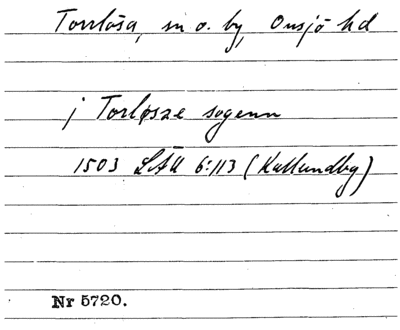 Torrlösa, sn o. by, Onsjö hd
j Torløsze sogenn
1503 LÄU 6:113 (Kallundby)
Nr 5720.